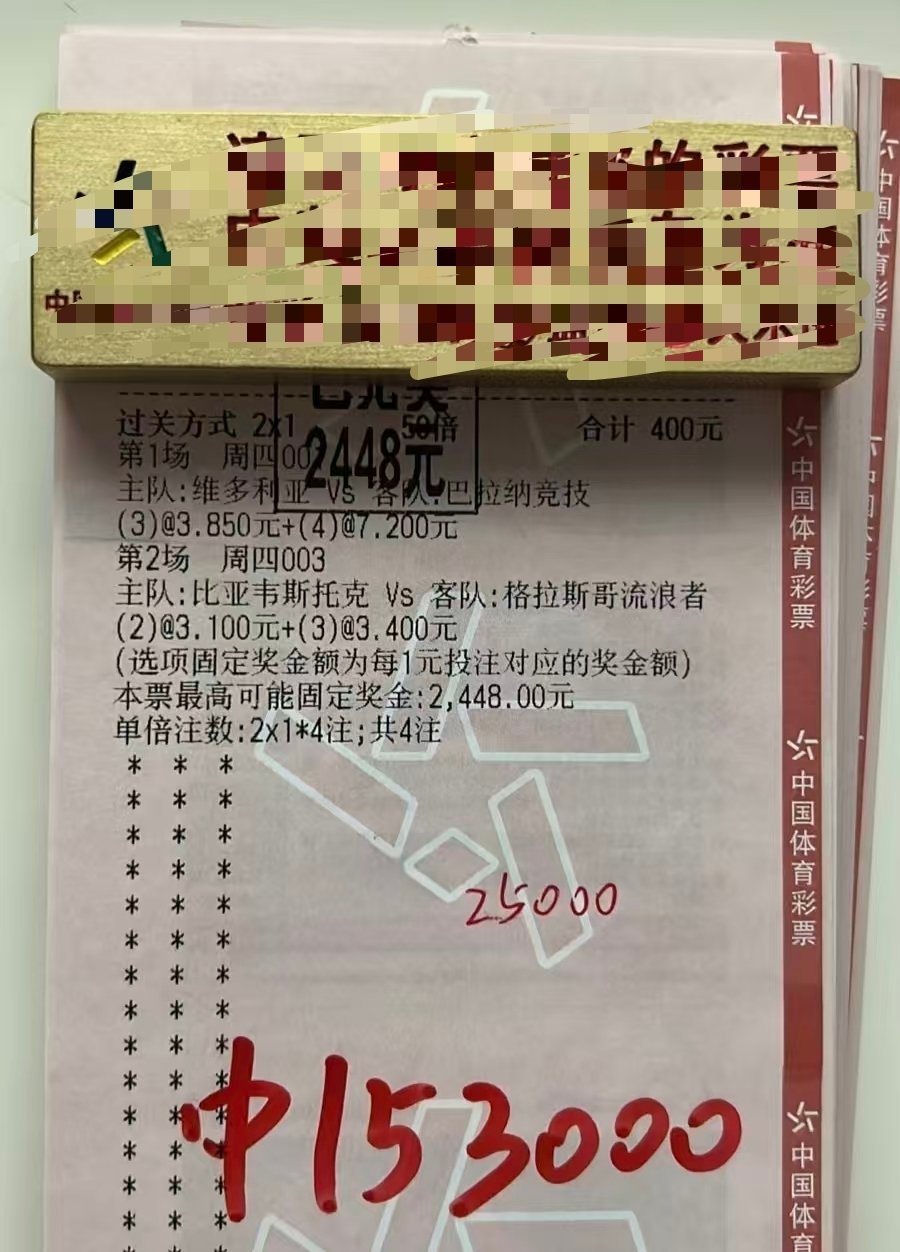 的彩票
已兑奖
2448元
过关方式 2x1 50倍 合计 400元
第1场 周四00
主队:维多利亚 Vs 客队:巴拉纳竞技
(3)@3.850元+(4)@7.200元
第2场 周四003
主队:比亚韦斯托克 Vs 客队:格拉斯哥流浪者
(2)@3.100元+(3)@3.400元
(选项固定奖金额为每1元投注对应的奖金额)
本票最高可能固定奖金:2,448.00元
单倍注数:2x1*4注;共4注
* * *
* * *
* * *
* * *
* * *
* * *
* * *
* * *
* * *
* * *
* * *
* * *
* * *
* * *
* * *
25000
中153000
中国体育彩票
中国体育彩票
中国体育彩票
中国体育